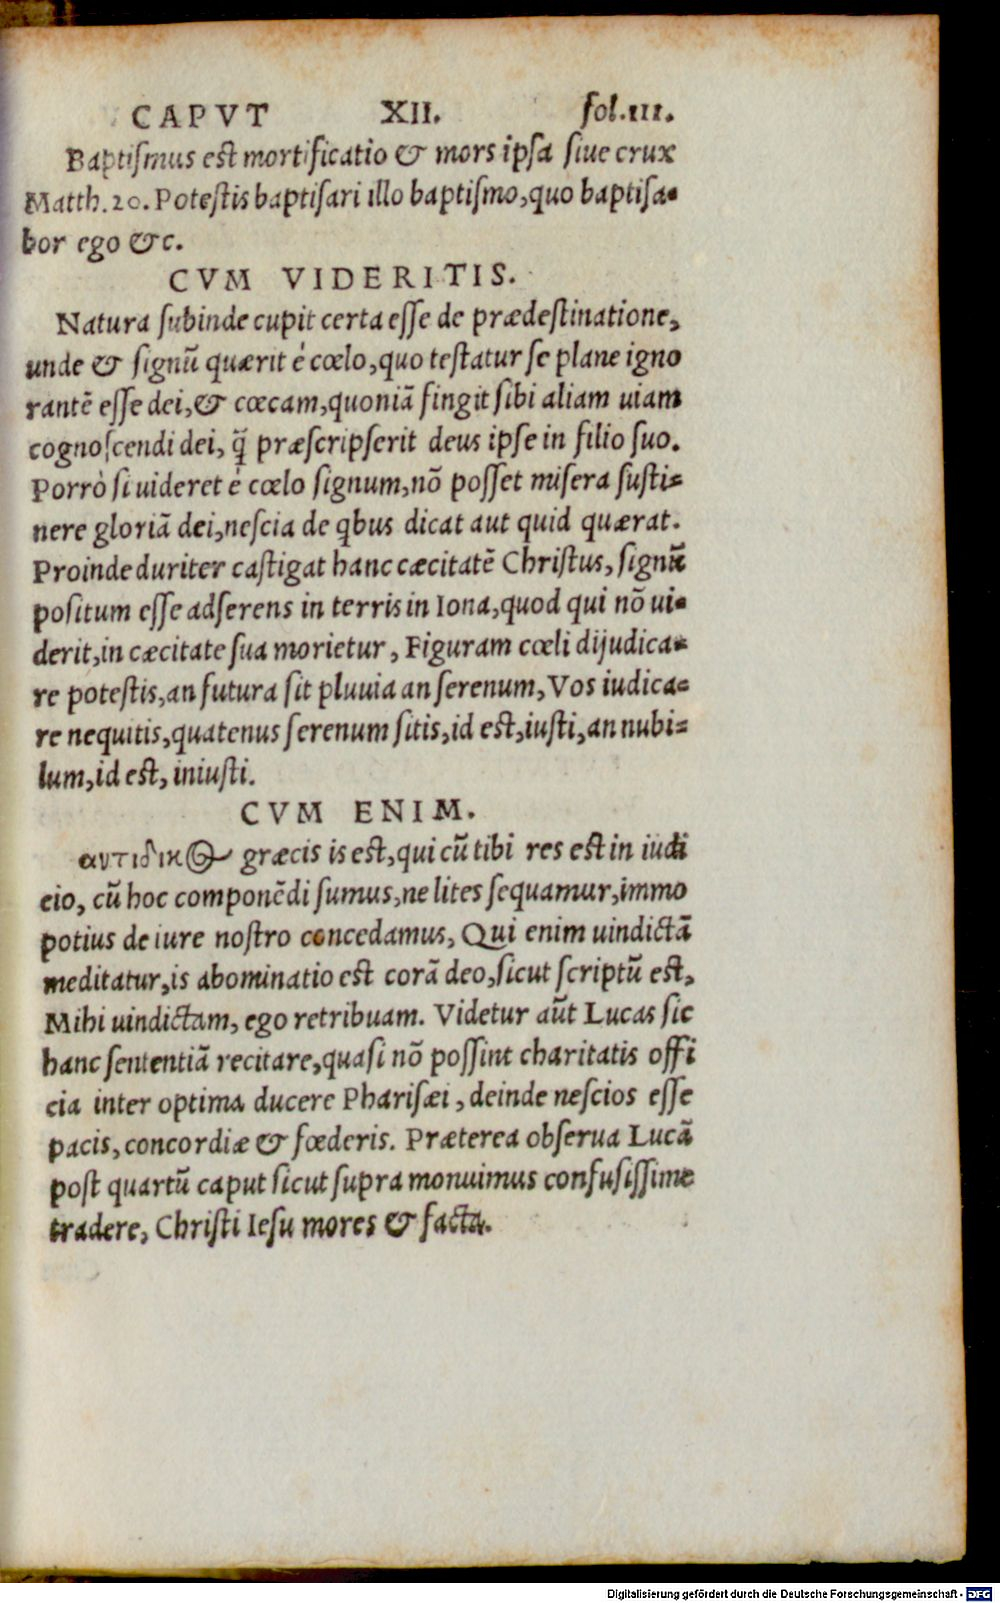 CAPVT XII. fol.III.
Baptiſmus est mortificatio & mors ipſa ſiue crux
Matth.20. Poteſtis baptiſari illo baptiſmo,quo baptiſa-
bor ego &c.
CVM VIDERITIS.
Natura ſubinde cupit certa eſſe de prædeſtinatione,
unde & ſignū quærit é cœlo,quo teſtatur ſe plane igno
rantē eſſe dei,& cœcam,quoniā fingit ſibi aliam uiam
cognoſcendi dei, q̃ præſcripſerit deus ipſe in filio ſuo.
Porrò ſi uideret é cœlo ſignum,nō poſſet miſera ſuſti-
nere gloriā dei,neſcia de qbus dicat aut quid quærat.
Proinde duriter caſtigat hanc cæcitatē Chriſtus, ſignū
poſitum eſſe adſerens in terris in Iona,quod qui nō ui-
derit,in cæcitate ſua morietur, Figuram cœli dijudica-
re poteſtis,an futura ſit pluuia an ſerenum,Vos iudica-
re nequitis,quatenus ſerenum ſitis,id eſt,iuſti,an nubi-
lum,id eſt, iniuſti.
CVM ENIM.
αντιδικ𝟿 græcis is eſt,qui cū tibi res eſt in iudi
cio, cū hoc componēdi ſumus,ne lites ſequamur,immo
potius de iure noſtro concedamus, Qui enim uindictā
meditatur,is abominatio eſt corā deo,ſicut ſcriptū eſt,
Mihi uindictam, ego retribuam. Videtur aūt Lucas ſic
hanc ſententiā recitare,quaſi nō poſſint charitatis offi
cia inter optima ducere Phariſæi, deinde neſcios eſſe
pacis, concordiæ & fœderis. Præterea obſerua Lucā
poſt quartū caput ſicut ſupra monuimus confuſiſſime
tradere, Chriſti Ieſu mores & facta.
Digitalisierung gefördert durch die Deutsche Forschungsgemeinschaft - DFG